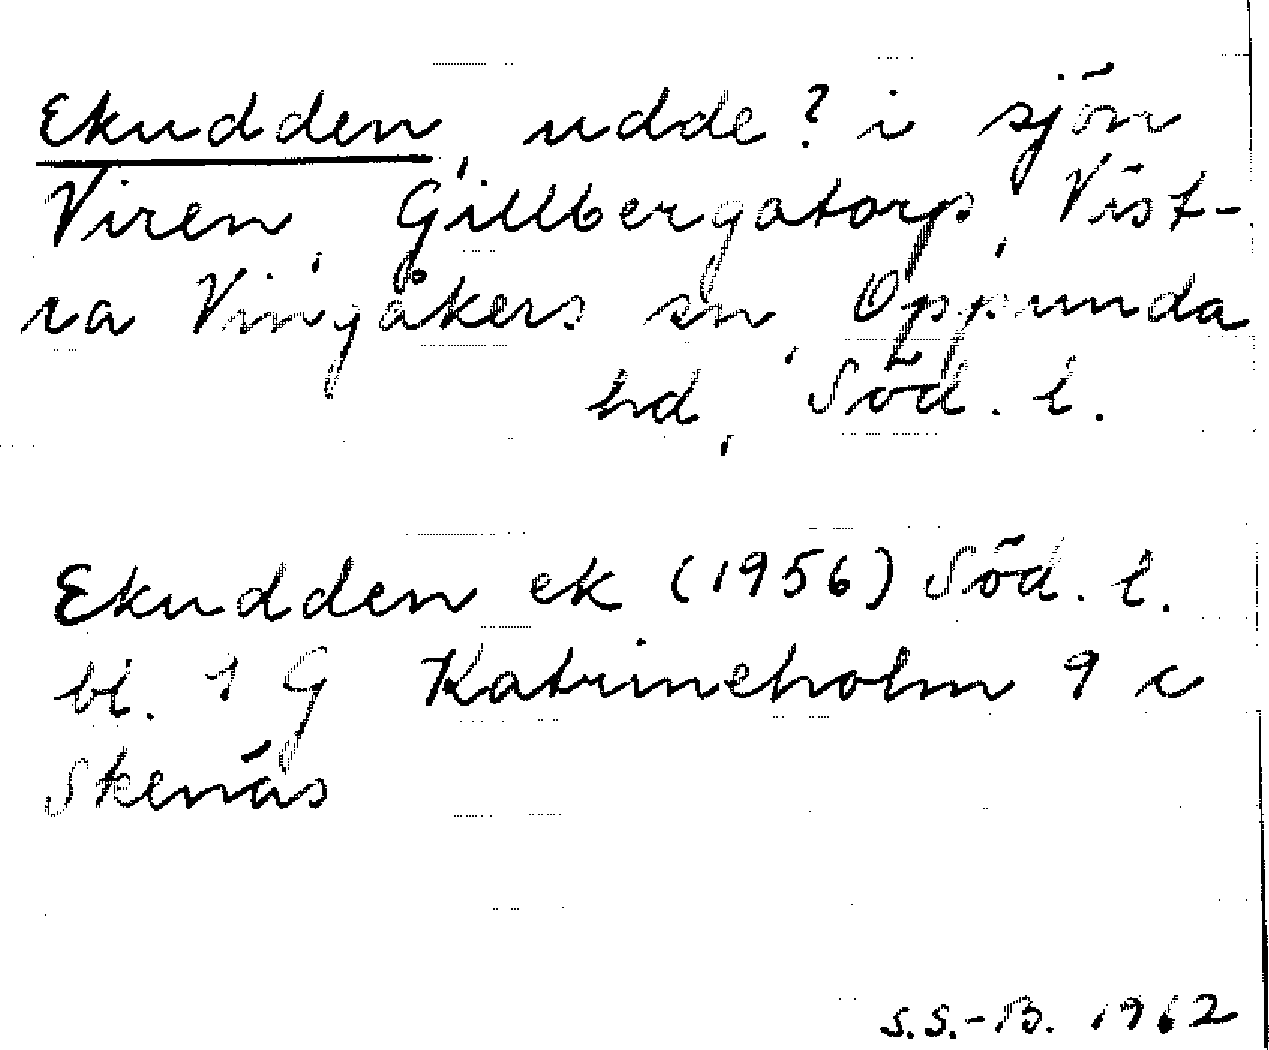 Ekudden, udde? i sjön
Viren, Gillbergatorp, Väst-
ra Vingåkers sn, Oppunda
hd, Söd. l.
Ekudden ek (1956) Söd. l.
bl. 1 G Katrineholm 9 c
Skenäs
S.S.-B. 1962